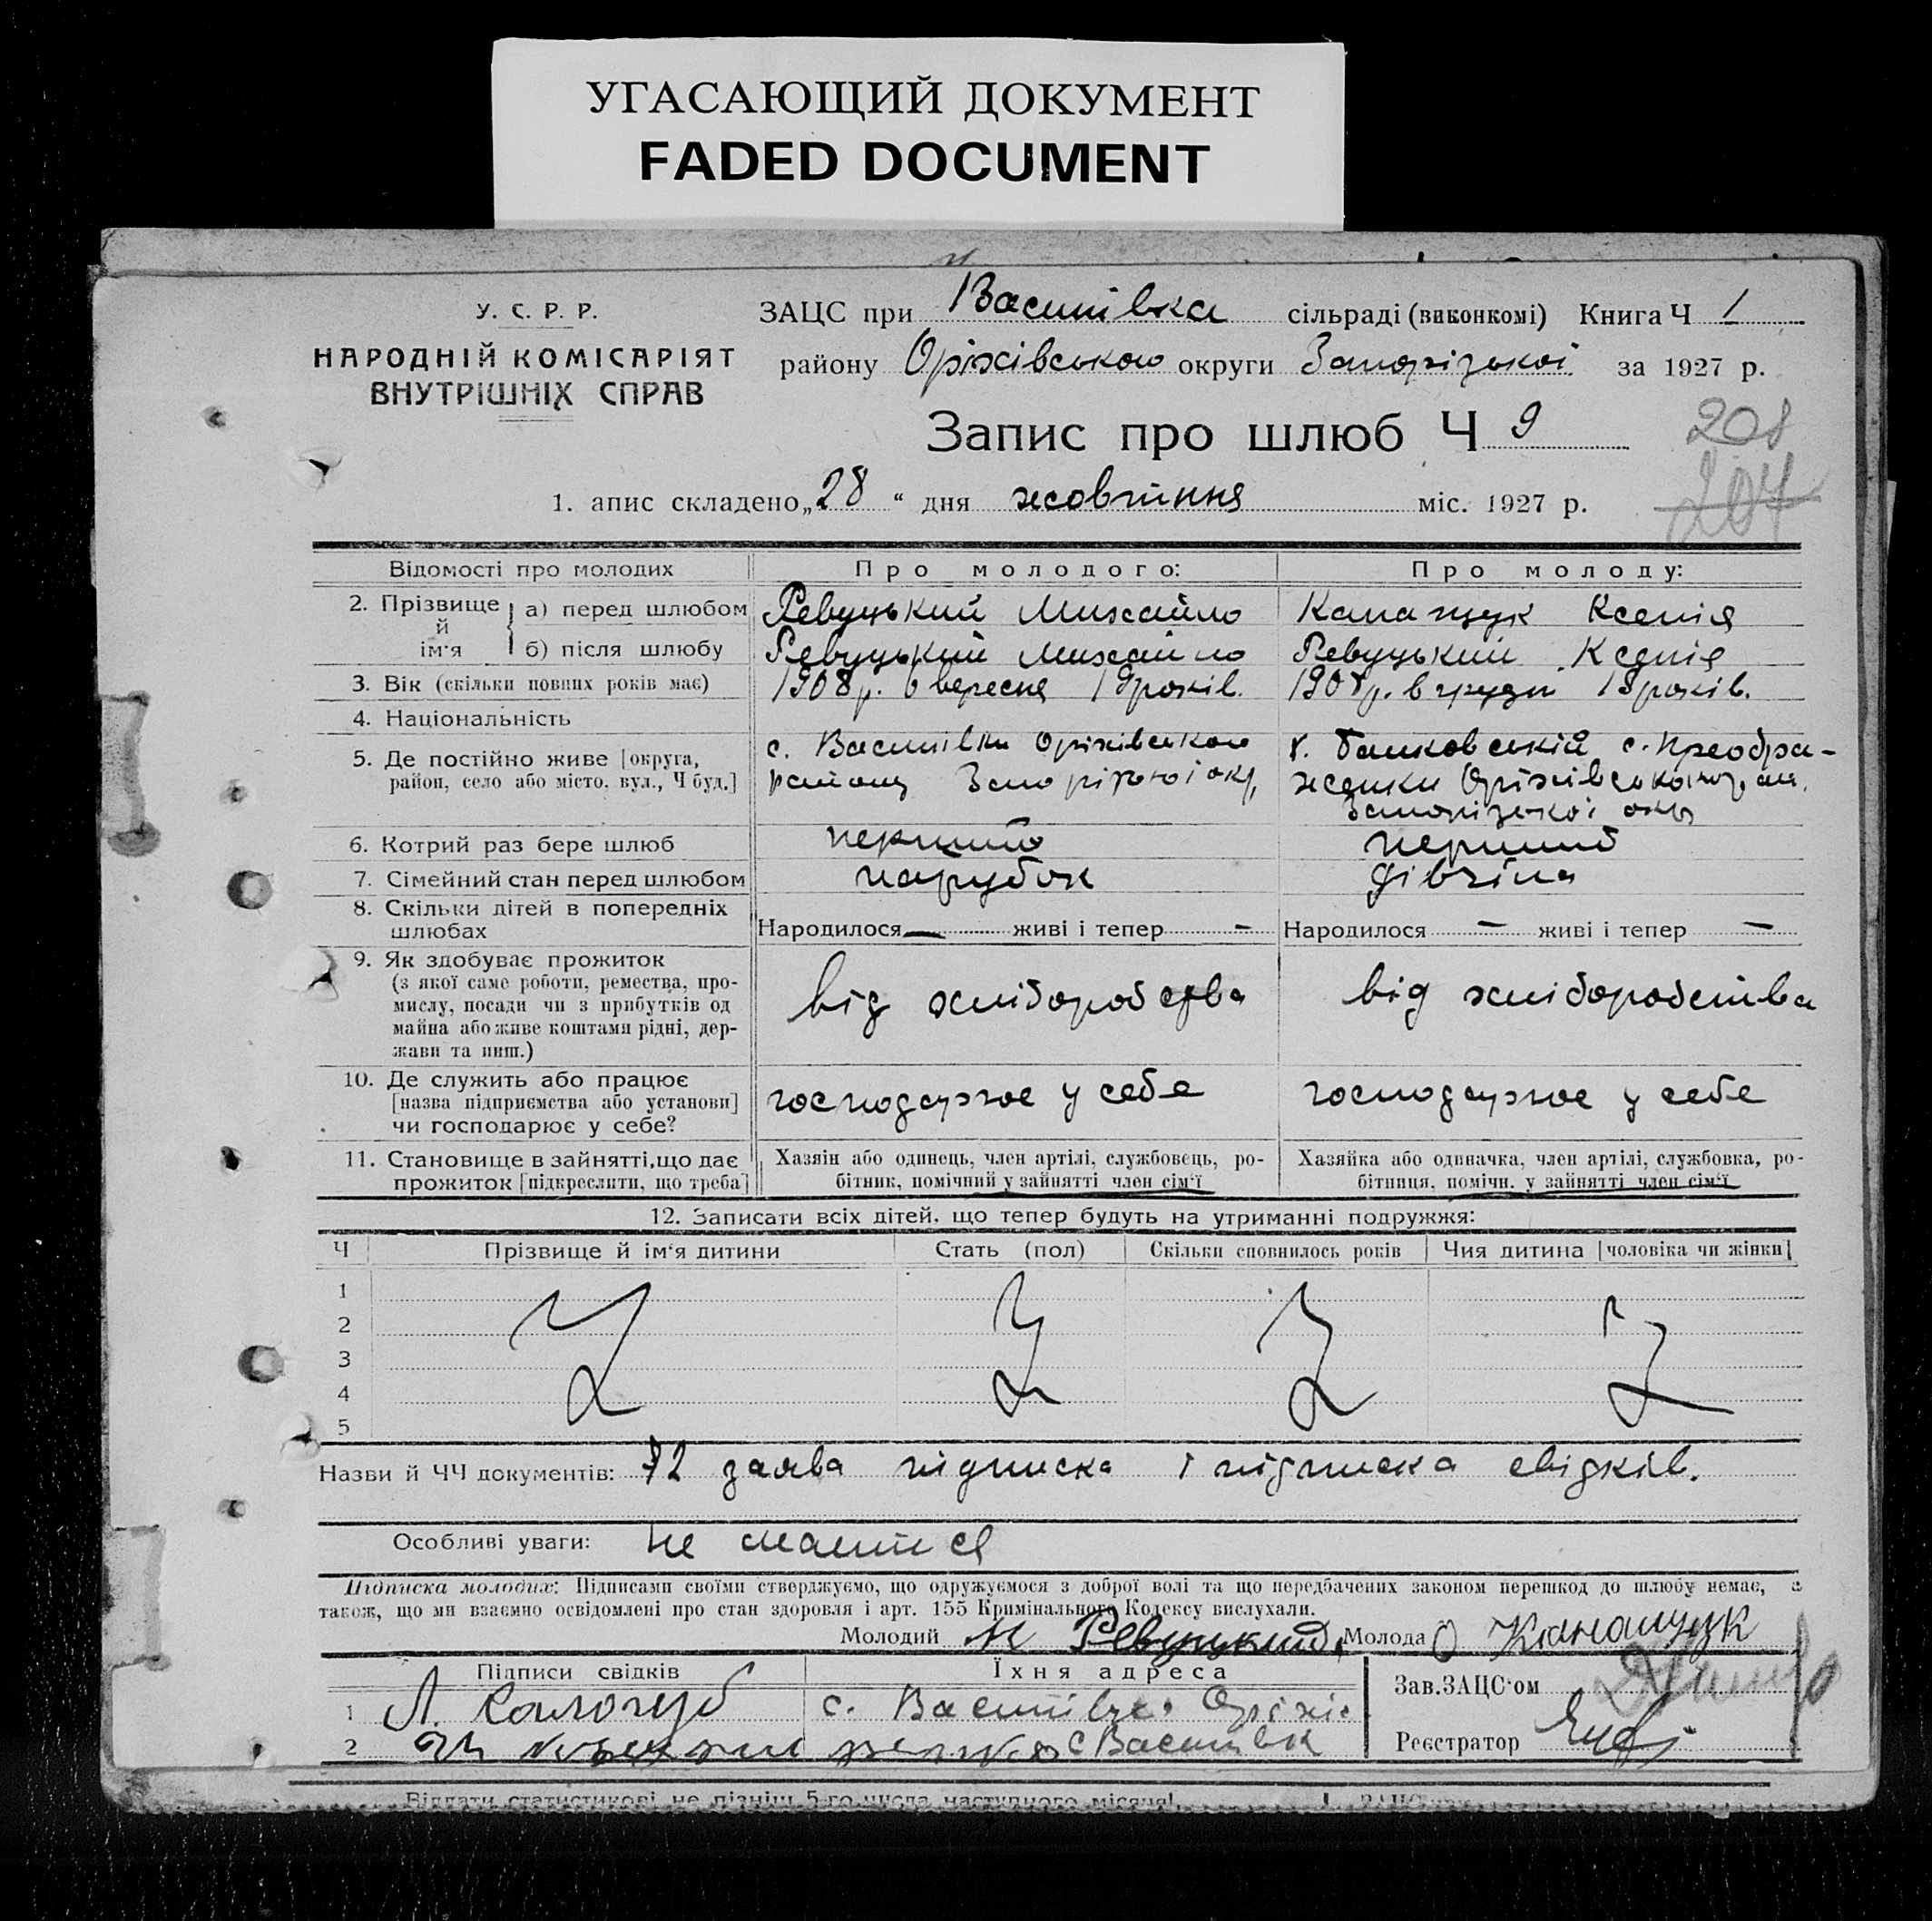 УГАСАЮЩИЙ ДОКУМЕНТ
FADED DOCUMENT
У. С. Р. Р.
НАРОДНІЙ КОМІСАРІЯТ
ВНУТРІШНІХ СПРАВ
ЗАЦС при Василівка сільраді (виконкомі) Книга Ч 1
району Оріхівського округи Запорізької за 1927 р.
Запис про шлюб Ч 9
208
207
1. апис складено „28“ дня жовтння міс. 1927 р.
Відомості про молодих Про молодого: Про молоду:
2. Прізвище й ім'я а) перед шлюбом Ревуцький Михайло Ксенія
б) після шлюбу Ревуцький Михайло Ревуцький Ксенія
3. Вік (скільки повних років має) 1908 р. 6 вересня 19 років. 1908 р. в грудн 18 років.
4. Національність
5. Де постійно живе [округа, с. Василівки Оріхівського Преобра-
район, село або місто, вул., Ч буд.] району Запорізької окр, женки
Запорізької окр
6. Котрий раз бере шлюб перший перший
7. Сімейний стан перед шлюбом парубок дівчіна
8. Скільки дітей в попередніх
шлюбах Народилося — живі і тепер - Народилося — живі і тепер —
9. Як здобуває прожиток
(з якої саме роботи, ремества, про-
мислу, посади чи з прибутків од від хліборобства від хліборобства
майна або живе коштами рідні, дер-
жави та инш.)
10. Де служить або працює
[назва підприємства або установи] господарює у себе господарює у себе
чи господарює у себе?
11. Становище в зайнятті, що дає Хазяін або одинець, член артілі, службовець, ро- Хазяйка або одиначка, член артілі, службовка, ро-
прожиток [підкреслити, що треба] бітник, помічний у зайнятті член сім'ї бітниця, помічн. у зайнятті член сім'ї
12. Записати всіх дітей, що тепер будуть на утриманні подружжя:
Ч Прізвище й ім'я дитини Стать (пол) Скільки сповнилось років Чия дитина [чоловіка чи жінки]
1
2
3
4
5
Назви й ЧЧ документів: 2 заява підписка і підписка свідків.
Особливі уваги: не
Підписка молодих: Підписами своїми стверджуємо, що одружуємося з доброї волі та що передбачених законом перешкод до шлюбу немає, а
також, що ми взаємно освідомлені про стан здоровля і арт. 155 Кримінального Кодексу вислухали.
Молодий М Ревуцкий, Молода
Підписи свідків Їхня адреса Зав. ЗАЦС'ом
1 Л. с. Василівка Оріхів
2 с Василівк Реєстратор
Віддати статистикові не пізніш 5-го числа наступного місяця!